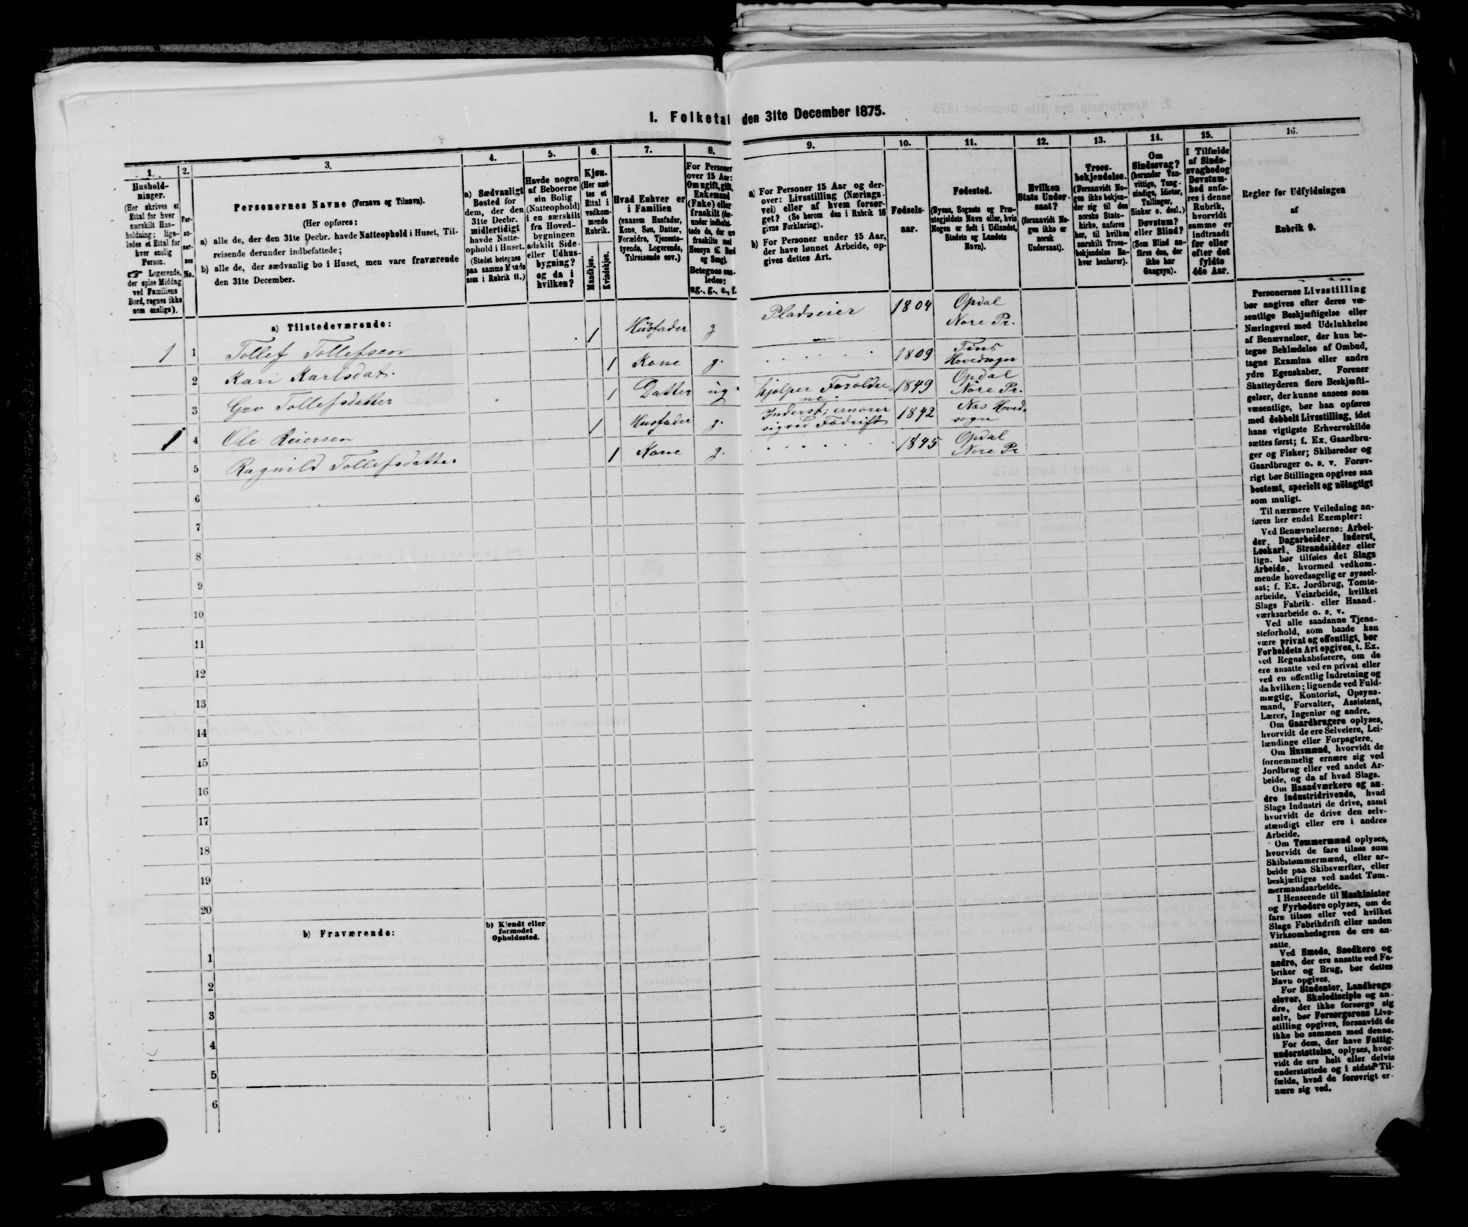 I. Folketal den 31te December 1875.
1. 2. 3. 4. 5. 6. 7. 8. 9. 10. 11. 12. 13. 14. 15. 16.
Husholdninger.
(Her skrives et
Ettal for hver
særskilt Husholdning;
ligeledes et Ettal for
hver enslig
Person.
☞ Logerende,
der spise Middag
ved Familiens
Bord, regnes ikke
som enslige).
Personernes No.
Personernes Navne (Fornavn og Tilnavn).
(Her opføres:
a) alle de, der den 31te Decbr. havde Natteophold i Huset, Tilreisende derunder indbefattede;
b) alle de, der sædvanlig bo i Huset, men vare fraværende
den 31te December.
a) Sædvanligt
Bosted for
dem, der den
31te Decbr.
midlertidigt
havde Natteophold i Huset.
(Stedet betegnes
paa samme Maade
som i Rubrik 11.)
Havde nogen
af Beboerne
sin Bolig
(Natteophold)
i en særskilt
fra Hovedbygningen
adskilt Side-
eller Udhusbygning?
og da i
hvilken?
Kjøn.
(Her sættes et
Ettal i
vedkommende
Rubrik.
Mandkjøn.
Kvindekjøn.
Hvad Enhver er
i Familien
(saasom Husfader,
Kone, Søn, Datter,
Forældre, Tjenestetyende, Logerende,
Tilreisende osv.)
For Personer
over 15 Aar:
Om ugift, gift,
Enkemand
(Enke) eller
fraskilt
Betegnes saaledes:
ug., g., e., f.
a) For Personer 15 Aar og derover: Livsstilling (Næringsvei) eller af hvem forsørget? (Se herom den i Rubrik 16
givne Forklaring).
b) For Personer under 15 Aar,
der have lønnet Arbeide, opgives dettes Art.
Fødsels-
aar.
Fødested.
(Byens, Sognets og Præstegjeldets Navn eller, hvis
Nogen er født i Udlandet,
Stedets og Landets
Navn).
Hvilken
Stats Undersaat?
(forsaavidt Nogen ikke er
norsk
Undersaat).
Troesbekjendelse.
(Forsaavidt Nogen ikke bekjender sig til den
norske Statskirke, anføres
her, til hvilken
særskilt Troesbekjendelse Enhver henhører).
Om
Sindssvag?
(herunder Vanvittige, Tungsindige, Idioter,
Tullinger,
Sinker o. desl.)
Døvstum?
eller Blind?
(Som Blind anføres den, der
ikke har
Gangsyn).
I Tilfælde
af Sindssvaghed og
Døvstumhed anføres i denne
Rubrik,
hvorvidt
samme er
indtraadt
før eller
efter det
fyldte
4de Aar.
Regler for Udfyldningen
af
Rubrik 9.
a) Tilstedeværende:
1 1 Tollef Tollefsen 1 Husfader g Pladseier 1804 Opdal Nore Pr.
2 Kari Karlsdat. 1 Kone g. 1809 Tins Hovedsogn
3 Gro Tollefsdatter 1 Datter ug hjelper Foreldrene 1849 Opdal Nore Pr.
1 4 Ole Reiersen 1 Husfader g. Inderst; ernærer sig ved Fædrift 1842 Næs Hovedsogn
5 Ragnild Tollefsdatter 1 Kone g. 1845 Opdal Nore Pr
6
7
8
9
10
11
12
13
14
15
16
17
18
19
20
b) Fraværende:
b) Kjendt eller
formodet
Opholdssted.
1
2
3
4
5
6
Personernes Livsstilling
bør angives efter deres væsentlige Beskjæftigelse eller
Næringsvei med Udelukkelse
af Benævnelser, der kun betegne Beklædelse af Ombud,
tagne Examina eller andre
ydre Egenskaber. Forener
Skatteyderen flere Beskjæftigelser, der kunne ansees som
væsentlige, bør han opføres
med dobbelt Livsstilling, idet
hans vigtigste Erhvervskilde
sættes først; f. Ex. Gaardbruger og Fisker; Skibsreder og
Gaardbruger o. s. v. Forøvrigt bør Stillingen opgives saa
bestemt, specielt og nøiagtigt
som muligt.
Til nærmere Veiledning anføres her endel Exempler:
Ved Benævnelserne: Arbeider, Dagarbeider, Inderst,
Løskarl, Strandsidder eller
lign. bør tilføies det Slags
Arbeide, hvormed vedkommende hovedsagelig er sysselsat; f. Ex. Jordbrug, Tomtearbeide, Veiarbeide, hvilket
Slags Fabrik- eller Haandværksarbeide o. s. v.
Ved alle saadanne Tjenesteforhold, som baade kan
være privat og offentligt, bør
Forholdets Art opgives, t. Ex.
ved Regnskabsførere, om de
ere ansatte ved en privat eller
ved en offentlig Indretning og
da hvilken; lignende ved Fuldmægtig, Kontorist, Opsynsmand, Forvalter, Assistent,
Lærer, Ingeniør og andre.
Om Gaardbrugere oplyses,
hvorvidt de ere Selveiere, Leilændinge eller Forpagtere.
Om Husmænd, hvorvidt de
fornemmelig ernære sig ved
Jordbrug eller ved andet Arbeide, og da af hvad Slags.
Om Haandværkere og andre Industridrivende, hvad
Slags Industri de drive, samt
hvorvidt de drive den selvstændigt eller ere i andres
Arbeide.
Om Tømmermænd oplyses,
hvorvidt de fare tilsøs som
Skibstømmermænd, eller arbeide paa Skibsværfter, eller
beskjæftiges ved andet Tømmermandsarbeide.
I Henseende til Maskinister
og Fyrbødere oplyses, om de
fare tilsøs eller ved hvilket
Slags Fabrikdrift eller anden
Virksomhedsgren de ere ansatte.
Ved Smede, Snedkere og
andre, der ere ansatte ved Fabriker og Brug, bør dettes
Navn opgives.
For Studenter, Landbrugselever, Skoledisciple og andre, der ikke forsørge sig
selv, bør Forsørgerens Livsstilling opgives, forsaavidt de
ikke bo sammen med denne.
For dem, der have Fattigunderstøttelse, oplyses, hvorvidt de ere helt eller delvis
understøttede og i sidste Tilfælde, hvad de forøvrigt ernære sig ved.